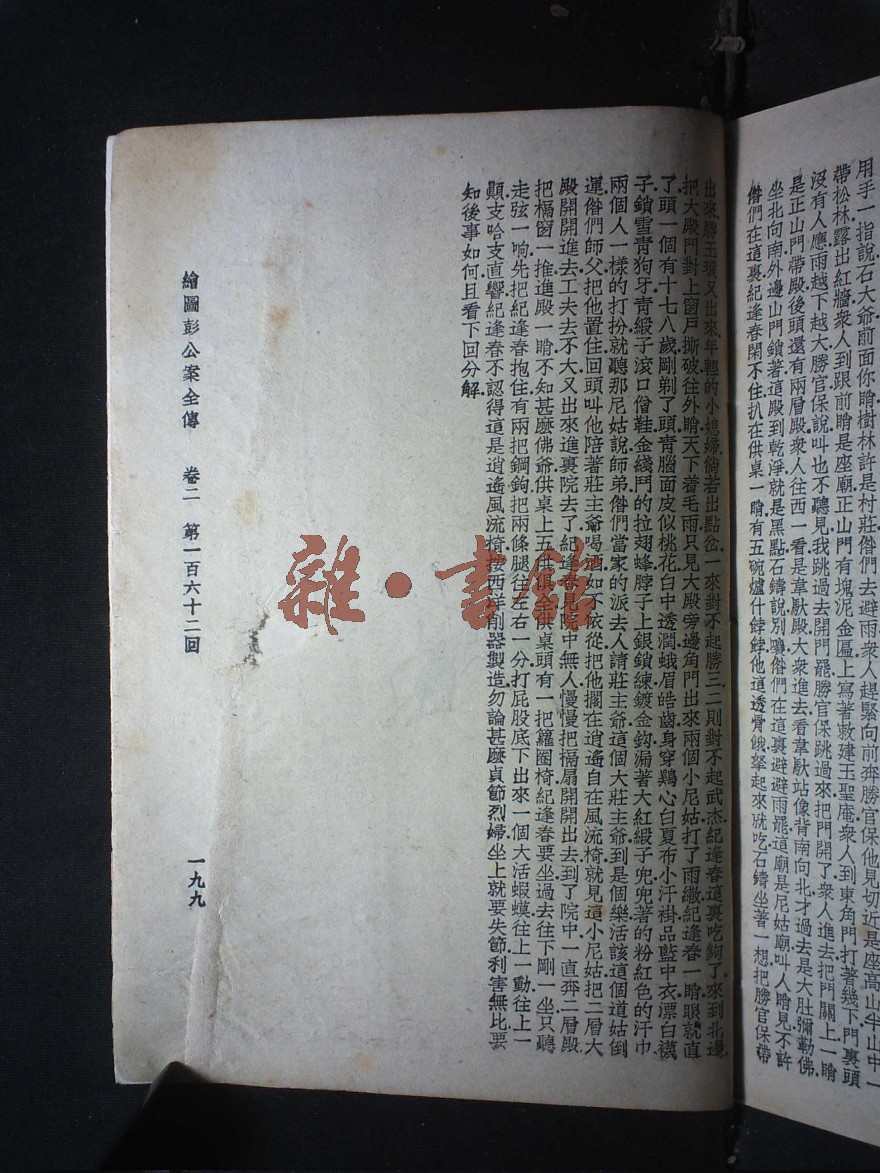 用手一指說石大爺前面你瞧樹林許是村莊偺們去避雨衆人趕緊向前奔勝官保他見切近是座高山半山中一
帶松林露出紅牆衆人到跟前瞧是座廟正山門有塊泥金匾上寫著敕建玉聖庵衆人到東角門打著幾下門裏頭
沒有人應雨越下越大勝官保說叫也不聽見我跳過去開門罷勝官保跳過來把門開了衆人進去把門關上一瞧
是正山門帶殿後頭還有兩層殿衆人往西一看是韋馱殿大衆進去看韋馱站像背南向北才過去是大肚彌勒佛
坐北向南外邊山門鎖著這殿到乾淨就是黑點石鑄說別嚷偺們在這裏避避雨罷這廟是尼姑廟叫人瞧見不許
偺們在這裏紀逢春閑不住扒在供桌一瞧有五碗爐什餑餑他這透骨餓拏起來就吃石鑄坐著一想把勝官保帶
出來勝玉環又出來年輕的小媳婦倘若出點岔一來對不起勝三二則對不起武杰紀逢春這裏吃夠了來到北邊
把大殿門對上窗戶撕破往外瞧天下着毛雨只見大殿旁邊角門出來兩個小尼姑打了雨繖紀逢春一瞧眼就直
了頭一個有十七八歲剛剃了頭青腦面皮似桃花白中透潤蛾眉皓齒身穿鷄心白夏布小汗褂品藍中衣漂白襪
子鎖雪青狗牙青緞子滾口僧鞋金綫鬥的拉翅蜂脖子上銀鎖練鍍金鈎漏著大紅緞子兜兜著的粉紅色的汗巾
兩個人一樣的打扮就聽那尼姑說師弟偺們當家的派去人請莊主爺這個大莊主爺到是個樂活該這個道姑倒
運偺們師父把他置住回頭叫他陪著莊主爺喝酒如不依從把他擱在逍遙自在風流椅就見這小尼姑把二層大
殿開開進去工夫去不大又出來進裏院去了紀逢春見院中無人慢慢把槅扇開開出去到了院中一直奔二層殿
把槅窗一推進殿一瞧不知甚麼佛爺供桌上五供俱全供桌頭有一把籮圈椅紀逢春要坐過去往下剛一坐只聽
走弦一响先把紀逢春抱住有兩把鋼鈎把兩條腿往左右一分打屁股底下出來一個大活蝦蟆往上一動往上一
顛支哈支直響紀逢春不認得這是逍遙風流椅按西洋削器製造勿論甚麼貞節烈婦坐上就要失節利害無比要
知後事如何且看下回分解
繪圖彭公案全傳 卷二 第一百六十二回 一九九
雜·書館